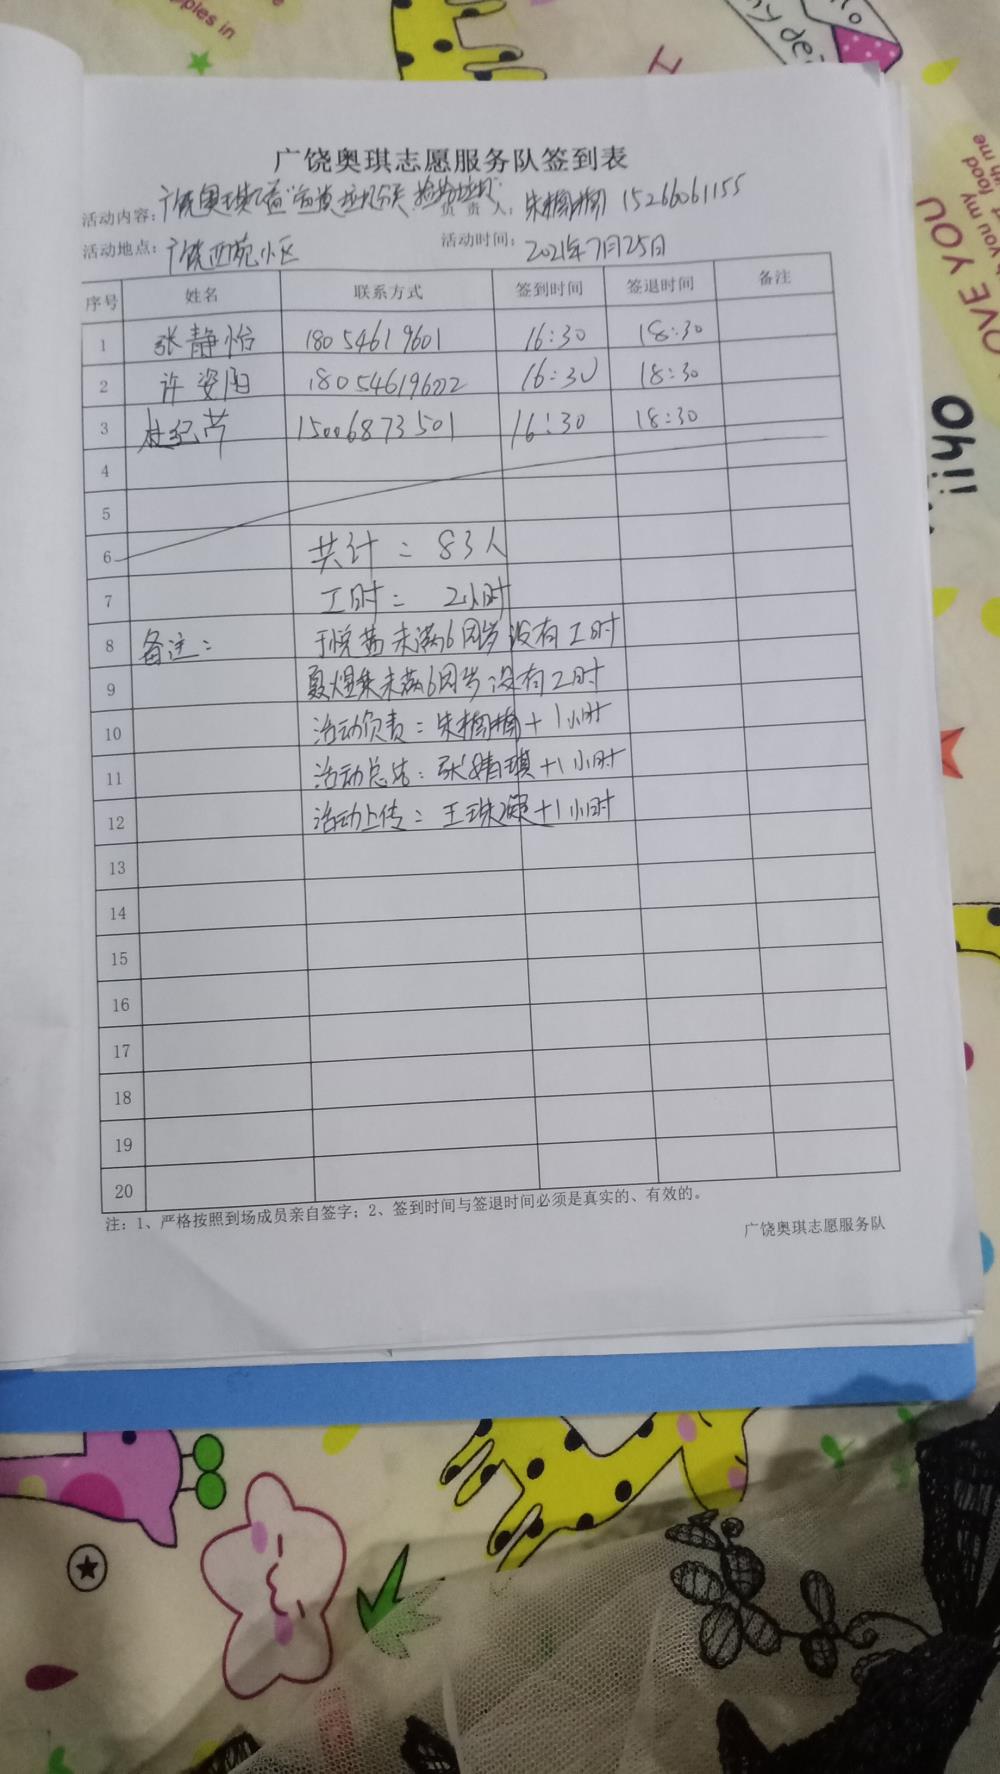 ples in
my de
广饶奥琪志愿服务队签到表
活动内容：广饶奥琪公益"宣传垃圾分类 捡拾垃圾" 负责人：朱楠楠 15266061155
活动地点：广饶西苑小区 活动时间：2021年7月25日
序号 姓名 联系方式 签到时间 签退时间 备注
1 张静怡 18054619601 16:30 18:30
2 许姿阳 18054619602 16:30 18:30
3 杜纪芹 15006873501 16:30 18:30
4
5
6 共计：83人
7 工时：2小时
8 备注：于悦茜未满6周岁没有工时
9 夏煜未满6周岁没有工时
10 活动负责：朱楠楠+1小时
11 活动总结：张婧琪+1小时
12 活动上传：王珠+1小时
13
14
15
16
17
18
19
20
注：1、严格按照到场成员亲自签字；2、签到时间与签退时间必须是真实的、有效的。
广饶奥琪志愿服务队
food
you my
OVE YOU
Oh!!